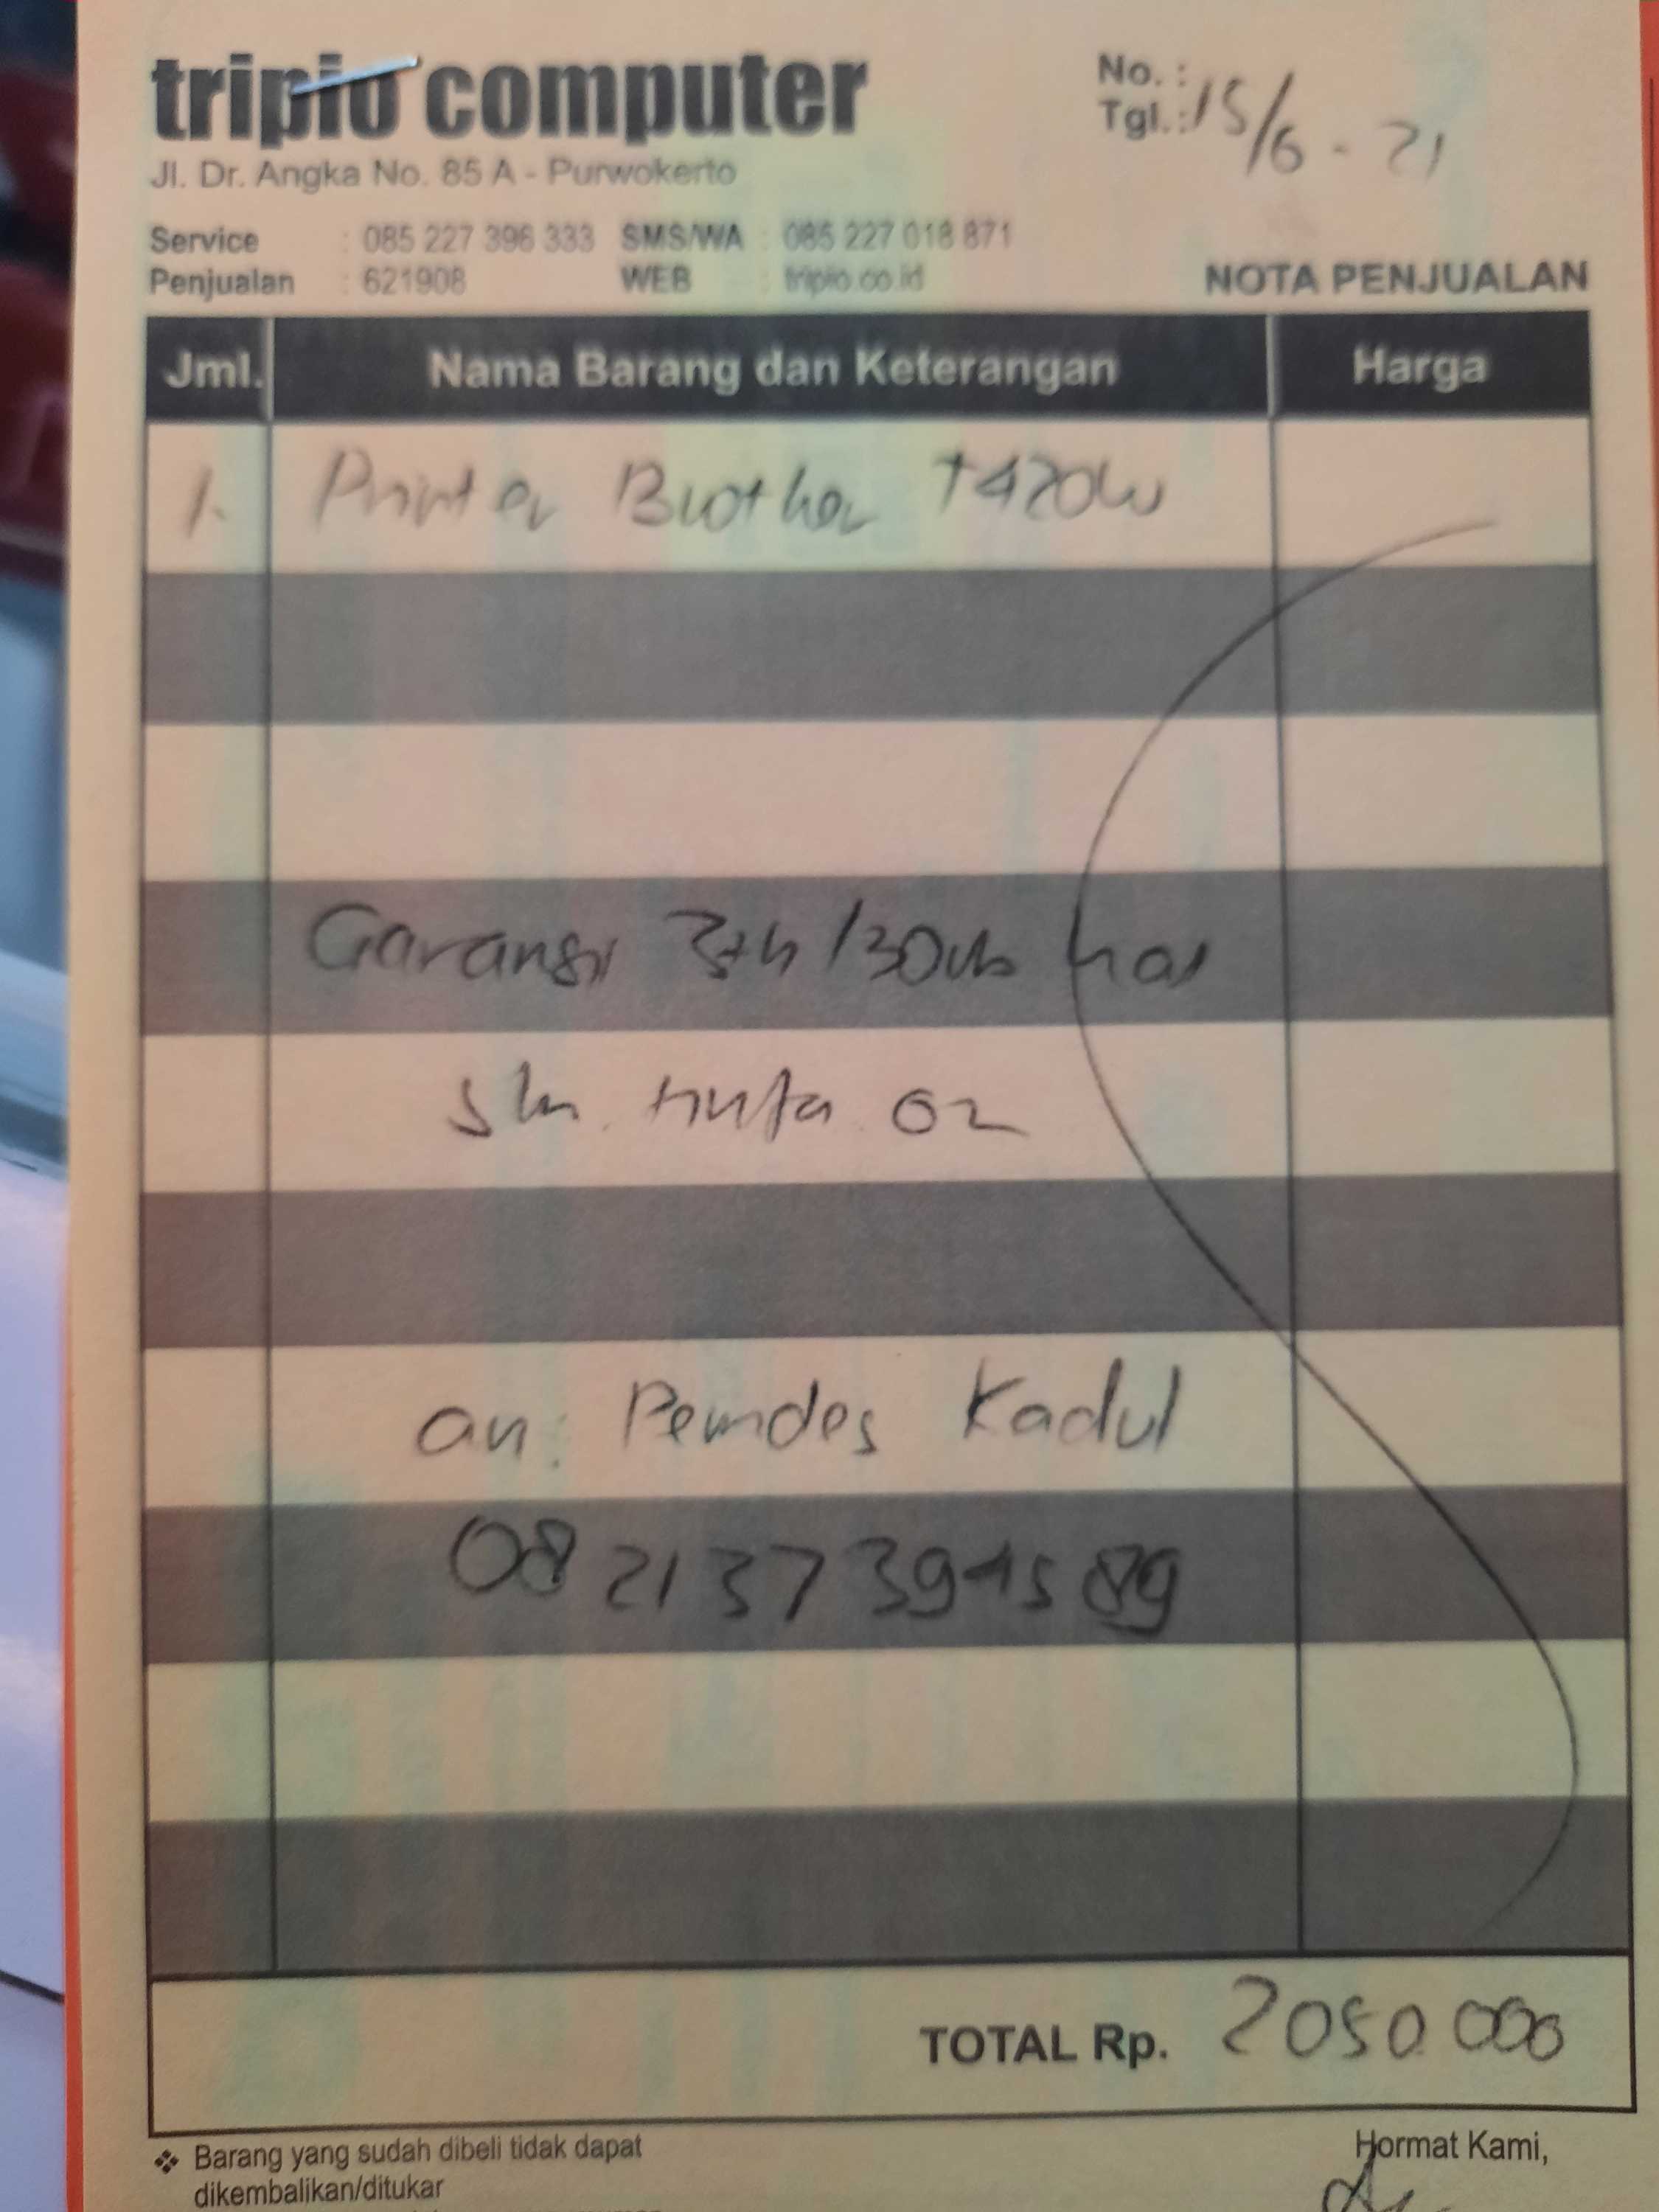 tripio computer
No. :
Tgl. : 15/6 - 21
Jl. Dr. Angka No. 85 A - Purwokerto
Service : 085 227 396 333 SMS/WA : 085 227 018 871
Penjualan : 621908 WEB : tripio.co.id
NOTA PENJUALAN
Jml. Nama Barang dan Keterangan Harga
1. Printer Brother T420W
Garansi 3th /30rb hal
tinta
an. Pemdes Kadul
08 2137 394589
TOTAL Rp. 2050.000
❖ Barang yang sudah dibeli tidak dapat
dikembalikan/ditukar
Hormat Kami,